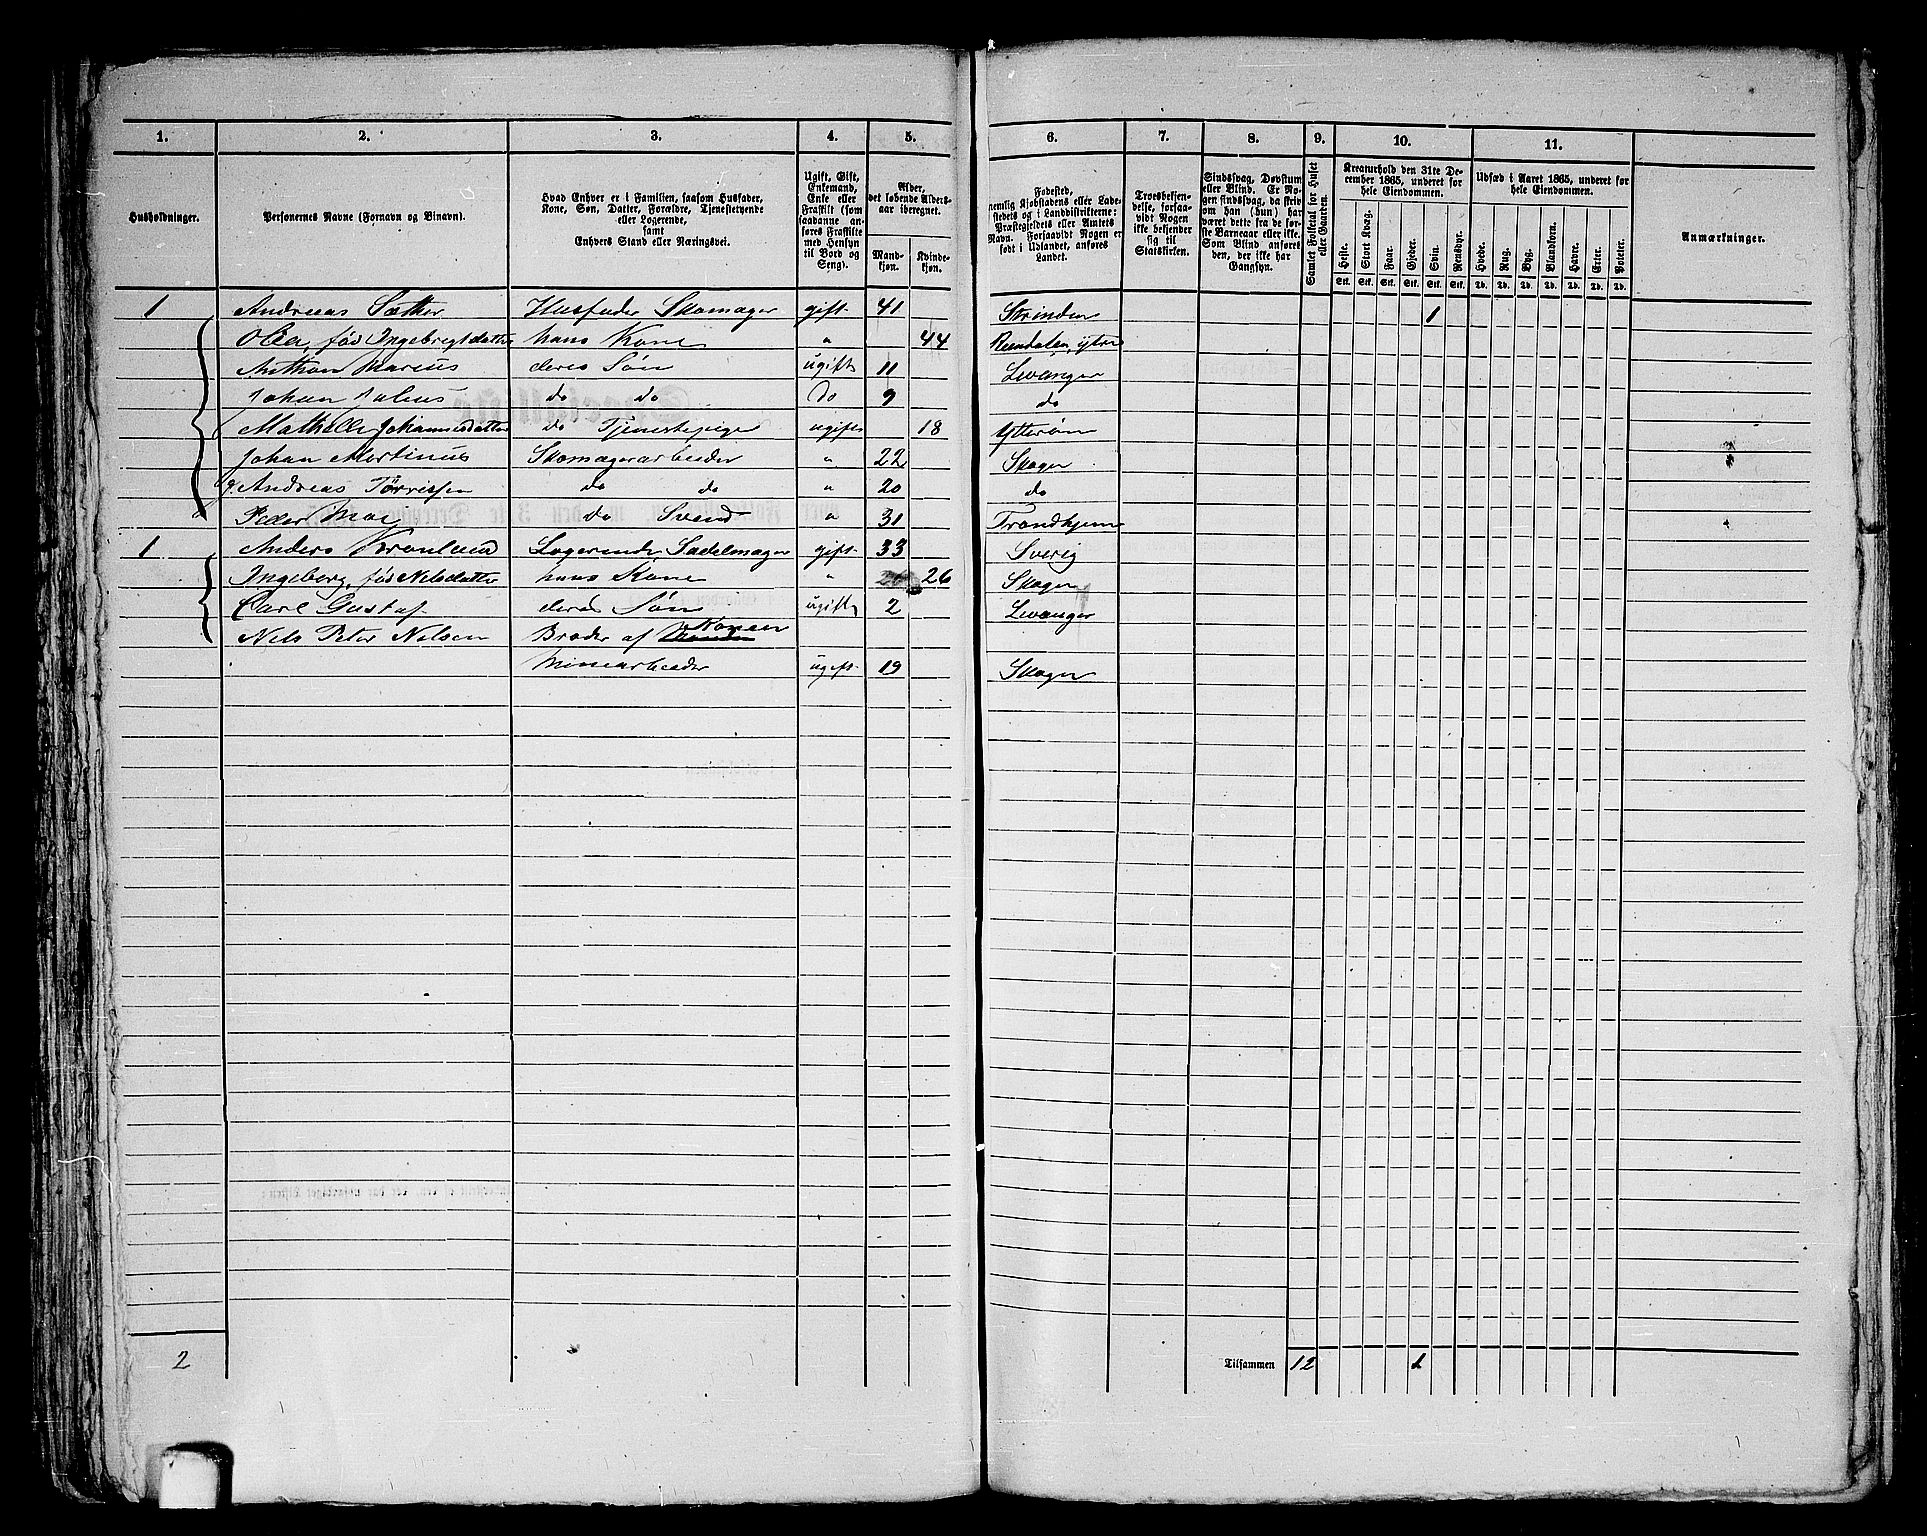 1. 2. 3. 4. 5. 6. 7. 8. 9. 10. 11.
Husholdninger.
Personernes Navne (Fornavn og Binavn).
Hvad Enhver er i Familien, saasom Husfader,
Kone, Søn, Datter, Forældre, Tjenestetyende
eller Logerende,
samt
Enhvers Stand eller Næringsvei.
Ugift, Gift,
Enkemand,
Enke eller
Fraskilt (som
saadanne an-
føres Fraskilte
med Hensyn
til Bord og
Seng).
Alder,
det løbende Alders-
aar iberegnet.
Mand-
kjøn.
Kvinde-
kjøn.
Fødested,
nemlig Kjøbstadens eller Lade-
stedets og i Landdistrikterne:
Præstegjeldets eller Amtets
Navn. Forsaavidt Nogen er
født i Udlandet, anføres
Landet.
Troesbekjen-
delse, forsaa-
vidt Nogen
ikke bekjender
sig til
Statskirken.
Sindssvag, Døvstum
eller Blind. Er No-
gen sindssvag, da skriv
om han (hun) har
været dette fra de før-
ste Barneaar eller ikke.
Som Blind anføres
den, der ikke har
Gangsyn.
Samlet Folketal for Huset
eller Gaarden.
Kreaturhold den 31te De-
cember 1865, underet for
hele Eiendommen.
Heste. Stort Kvæg. Faar. Gjeder. Svin. Rensdyr.
Stk. Stk. Stk. Stk. Stk. Stk.
Udsæd i Aaret 1865, underet for
hele Eiendommen.
Hvede. Rug. Byg. Blandkorn. Havre. Erter. Poteter.
Td. Td. Td. Td. Td. Td. Td.
Anmærkninger.
1 Andreas Sætter Husfader Skomager gift 41 Strinden 1
Olea, fød Ingebrigtdatter hans Kone " 44 Rendalen, ytre
Anthon Marius deres Søn ugift 11 Levanger
Johan Julius do do Do 9 do
Mathelle Johannesdatter do Tjenestepige ugift 18 Ytterøen
Johan Martinus Skomagerarbeider " 22 Skogn
Andreas Tørrissen do do " 20 do
Peder Moe do Svend " 31 Trondhjem
1 Anders Kronlund Logerende, Sadelmager gift 33 Sverig
Ingeborg, fød Nelsdatter hans Kone " 26 Skogn
Carl Gustaf deres Søn ugift 2 Levanger
Nels Peter Nelsen Broder af Konen
Minearbeider ugift 19 Skogn
2 Tilsammen 12 1